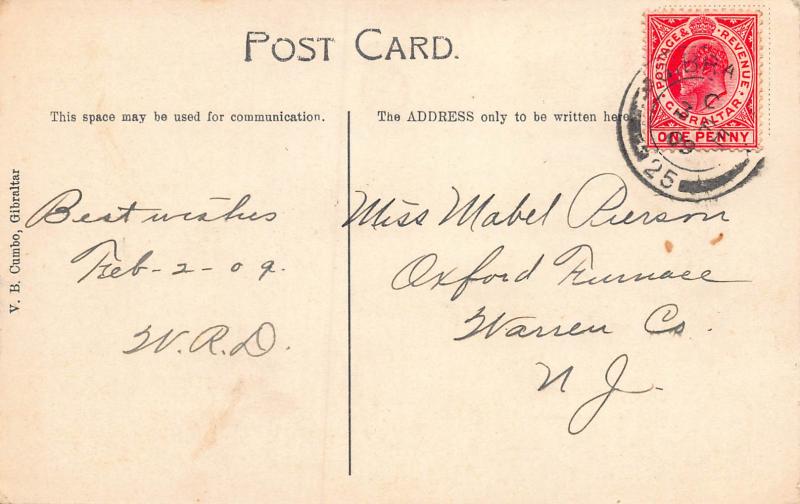 POST CARD.
This space may be used for communication.
The ADDRESS only to be written here
POSTAGE & REVENUE
GIBRALTAR
ONE PENNY
09
25
V. B. Cumbo, Gibraltar
Best wishes
Feb-2-09.
W.R.D.
Miss Mabel Pierson
Oxford Furnace
Warren Co.
N J.